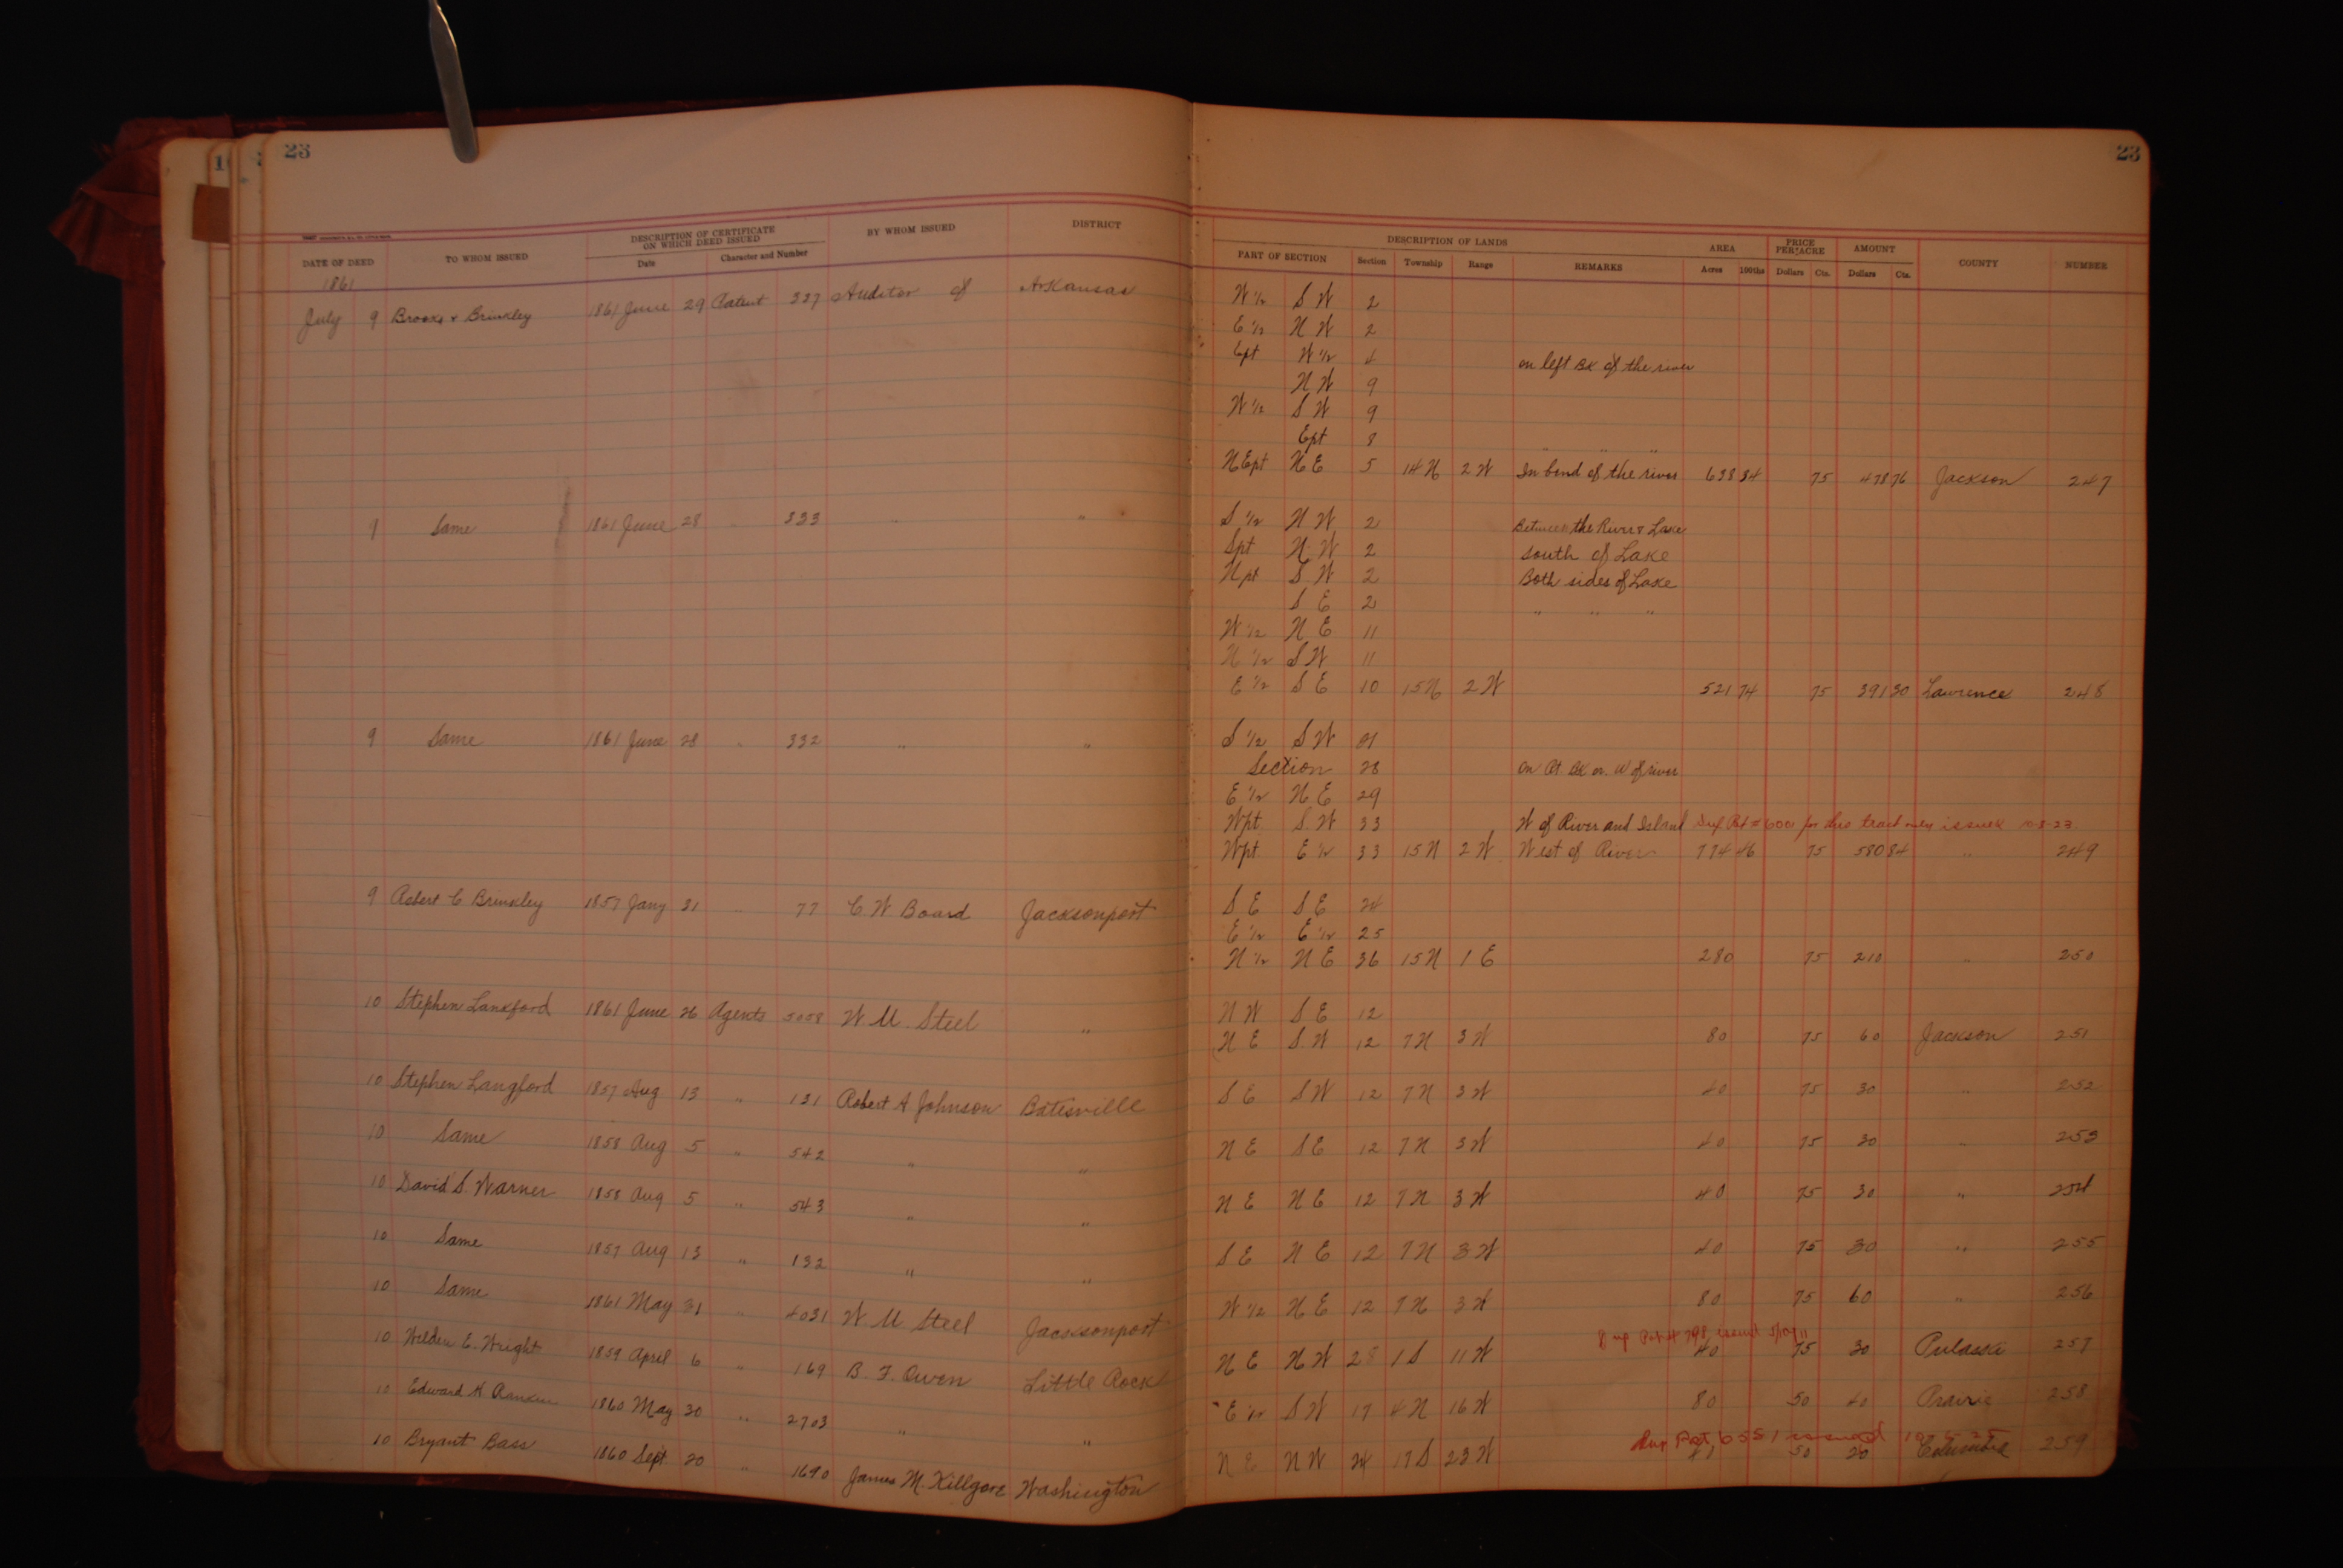 23
23
DATE OF DEED TO WHOM ISSUED DESCRIPTION OF CERTIFICATE ON WHICH DEED ISSUED Date Character and Number BY WHOM ISSUED DISTRICT
DESCRIPTION OF LANDS PART OF SECTION Section Township Range REMARKS AREA Acres 100ths PRICE PER ACRE Dollars Cts. AMOUNT Dollars Cts. COUNTY NUMBER
1861
July 9 Brooks & Brinkley 1861 June 29 Patent 337 Auditor of Arkansas W 1/2 S W 2
E 1/2 N W 2
Ept W 1/2 4 on left Bk of the river
N W 9
W 1/2 S W 9
Ept 8 " " "
NEpt N E 5 14 N 2 W In bend of the river 638 34 75 478 76 Jackson 247
9 Same 1861 June 28 " 333 " " S 1/2 N W 2 Between the River & Lake
Spt N W 2 South of Lake
Npt S W 2 Both sides of Lake
S E 2 " " "
W 1/2 N E 11
N 1/2 S W 11
E 1/2 S E 10 15 N 2 W 521 74 75 391 30 Lawrence 248
9 Same 1861 June 28 " 332 " " S 1/2 S W 21
Section 28 on Rt. Bk or W of river
E 1/2 N E 29
Wpt S. W 33 W of River and Island for this tract only issued 10-8-23
Wpt E 1/2 33 15 N 2 W West of River 774 46 75 580 84 " 249
9 Robert C Brinkley 1857 Jany 31 " 77 C W Board Jacksonport S E S E 24
E 1/2 E 1/2 25
N 1/2 N E 36 15 N 1 E 280 75 210 " 250
10 Stephen Lankford 1861 June 26 Agents 5058 W. M. Steel " N W S E 12
N E S. W 12 7 N 3 W 80 75 60 Jackson 251
10 Stephen Langford 1857 Aug 13 " 131 Robert A Johnson Batesville S E S W 12 7 N 3 W 40 75 30 " 252
10 Same 1858 Aug 5 " 542 " " N E S E 12 7 N 3 W 40 75 30 " 253
10 David S. Warner 1858 Aug 5 " 543 " " N E N E 12 7 N 3 W 40 75 30 " 254
10 Same 1857 Aug 13 " 132 " " S E N E 12 7 N 3 W 40 75 30 " 255
10 Same 1861 May 31 " 4031 W M Steel Jacksonport W 1/2 N E 12 7 N 3 W 80 75 60 " 256
Dup Pat # 798 issued 5/10/11
10 Welden E. Wright 1859 April 6 " 169 B. F. Owen Little Rock N E N W 28 1 S 11 W 40 75 30 Pulaski 257
10 Edward H Rankin 1860 May 30 " 2703 " " E 1/2 S W 17 4 N 16 W 80 50 40 Prairie 258
Dup Pat. 6551 issued
10 Bryant Bass 1860 Sept 20 " 1690 James M. Killgore Washington N E N W 24 17 S 23 W 50 20 Columbia 259